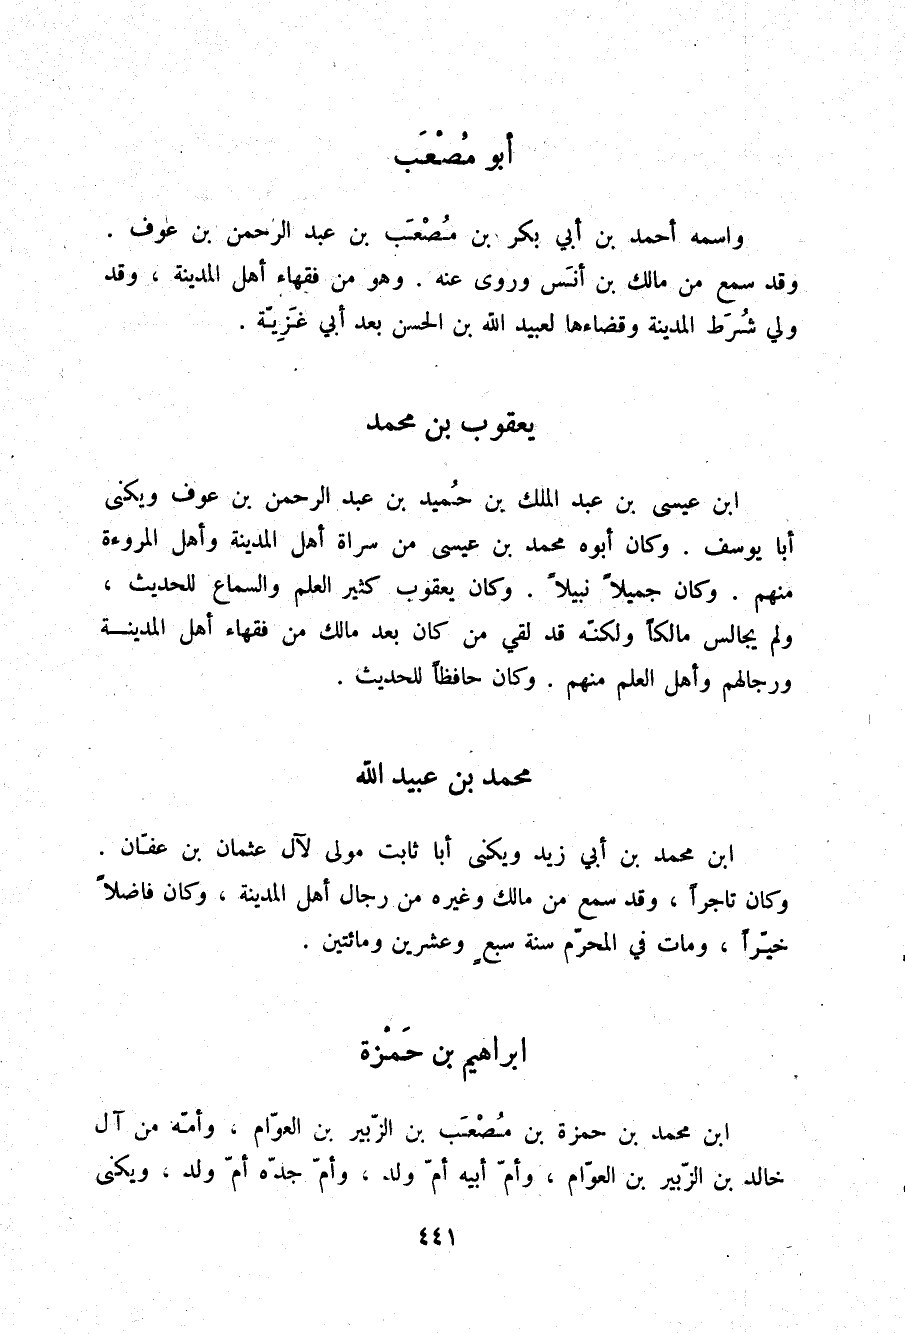 أبو مُصْعَب
واسمه أحمد بن أبي بكر بن مُصْعَب بن عبد الرحمن بن عوف .
وقد سمع من مالك بن أنَس وروى عنه . وهو من فقهاء أهل المدينة ، وقد
ولي شُرَط المدينة وقضاءها لعبيد الله بن الحسن بعد أبي غَزِيّة .
يعقوب بن محمد
ابن عيسى بن عبد الملك بن حُميد بن عبد الرحمن بن عوف ويكنى
أبا يوسف . وكان أبوه محمد بن عيسى من سراة أهل المدينة وأهل المروءة
منهم . وكان جميلاً نبيلاً . وكان يعقوب كثير العلم والسماع للحديث ،
ولم يجالس مالكاً ولكنّه قد لقي من كان بعد مالك من فقهاء أهل المدينــة
ورجالهم وأهل العلم منهم . وكان حافظاً للحديث .
محمد بن عبيد الله
ابن محمد بن أبي زيد ويكنى أبا ثابت مولى لآل عثمان بن عفّان .
وكان تاجراً ، وقد سمع من مالك وغيره من رجال أهل المدينة ، وكان فاضلاً
خيّراً ، ومات في المحرّم سنة سبعٍ وعشرين ومائتين .
ابراهيم بن حَمْزة
ابن محمد بن حمزة بن مُصْعَب بن الزّبير بن العوّام ، وأمّه من آل
خالد بن الزّبير بن العوّام ، وأمّ أبيه أمّ ولد ، وأمّ جدّه أمّ ولد ، ويكنى
٤٤١